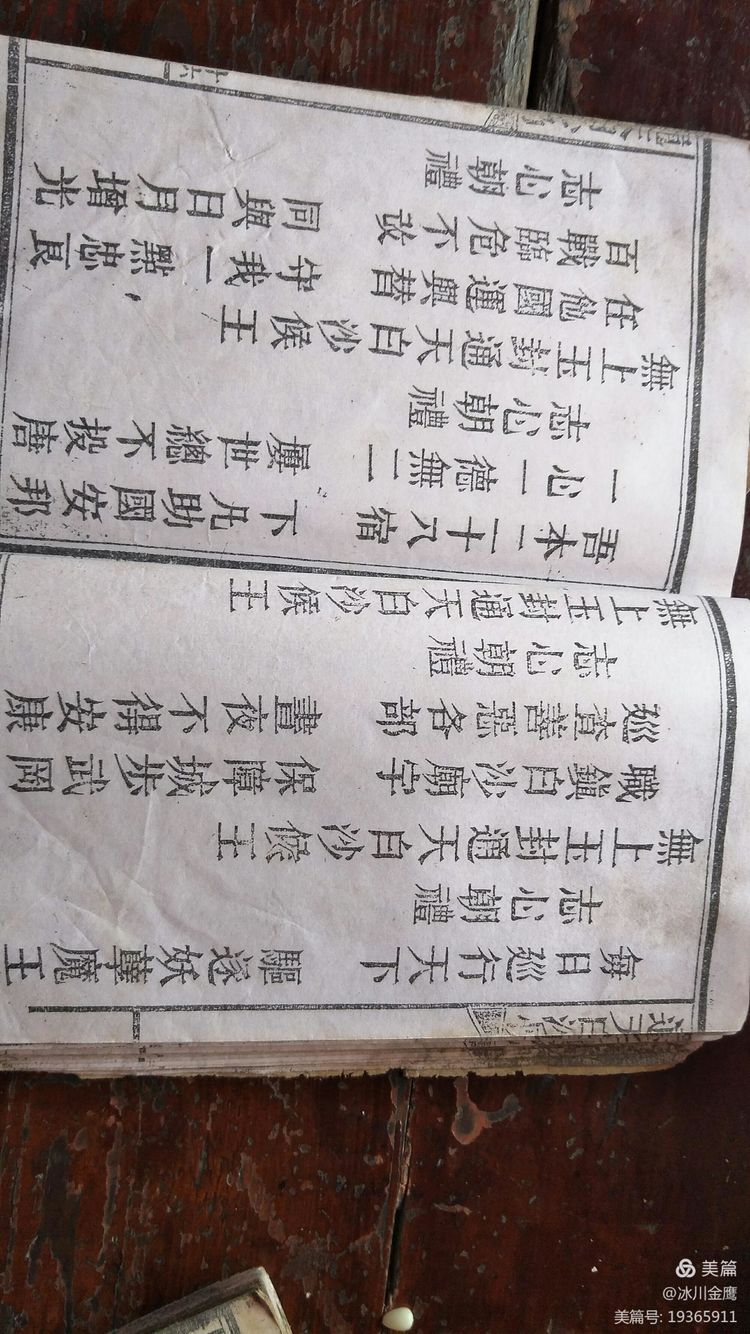 每日巡行天下　驅逐妖孽魔王
志心朝禮
無上玉封通天白沙候王
職鎮白沙廟宇　保障城步武岡
巡查善惡各部　晝夜不得安康
志心朝禮
無上玉封通天白沙候王
吾本二十八宿　下凡助國安邦
一心一德無二　屢世總不投唐
志心朝禮
無上玉封通天白沙候王
任他國運興替　守我一點忠良
百戰臨危不改　同與日月增光
志心朝禮
十六
美篇
@冰川金鹰
美篇号: 19365911